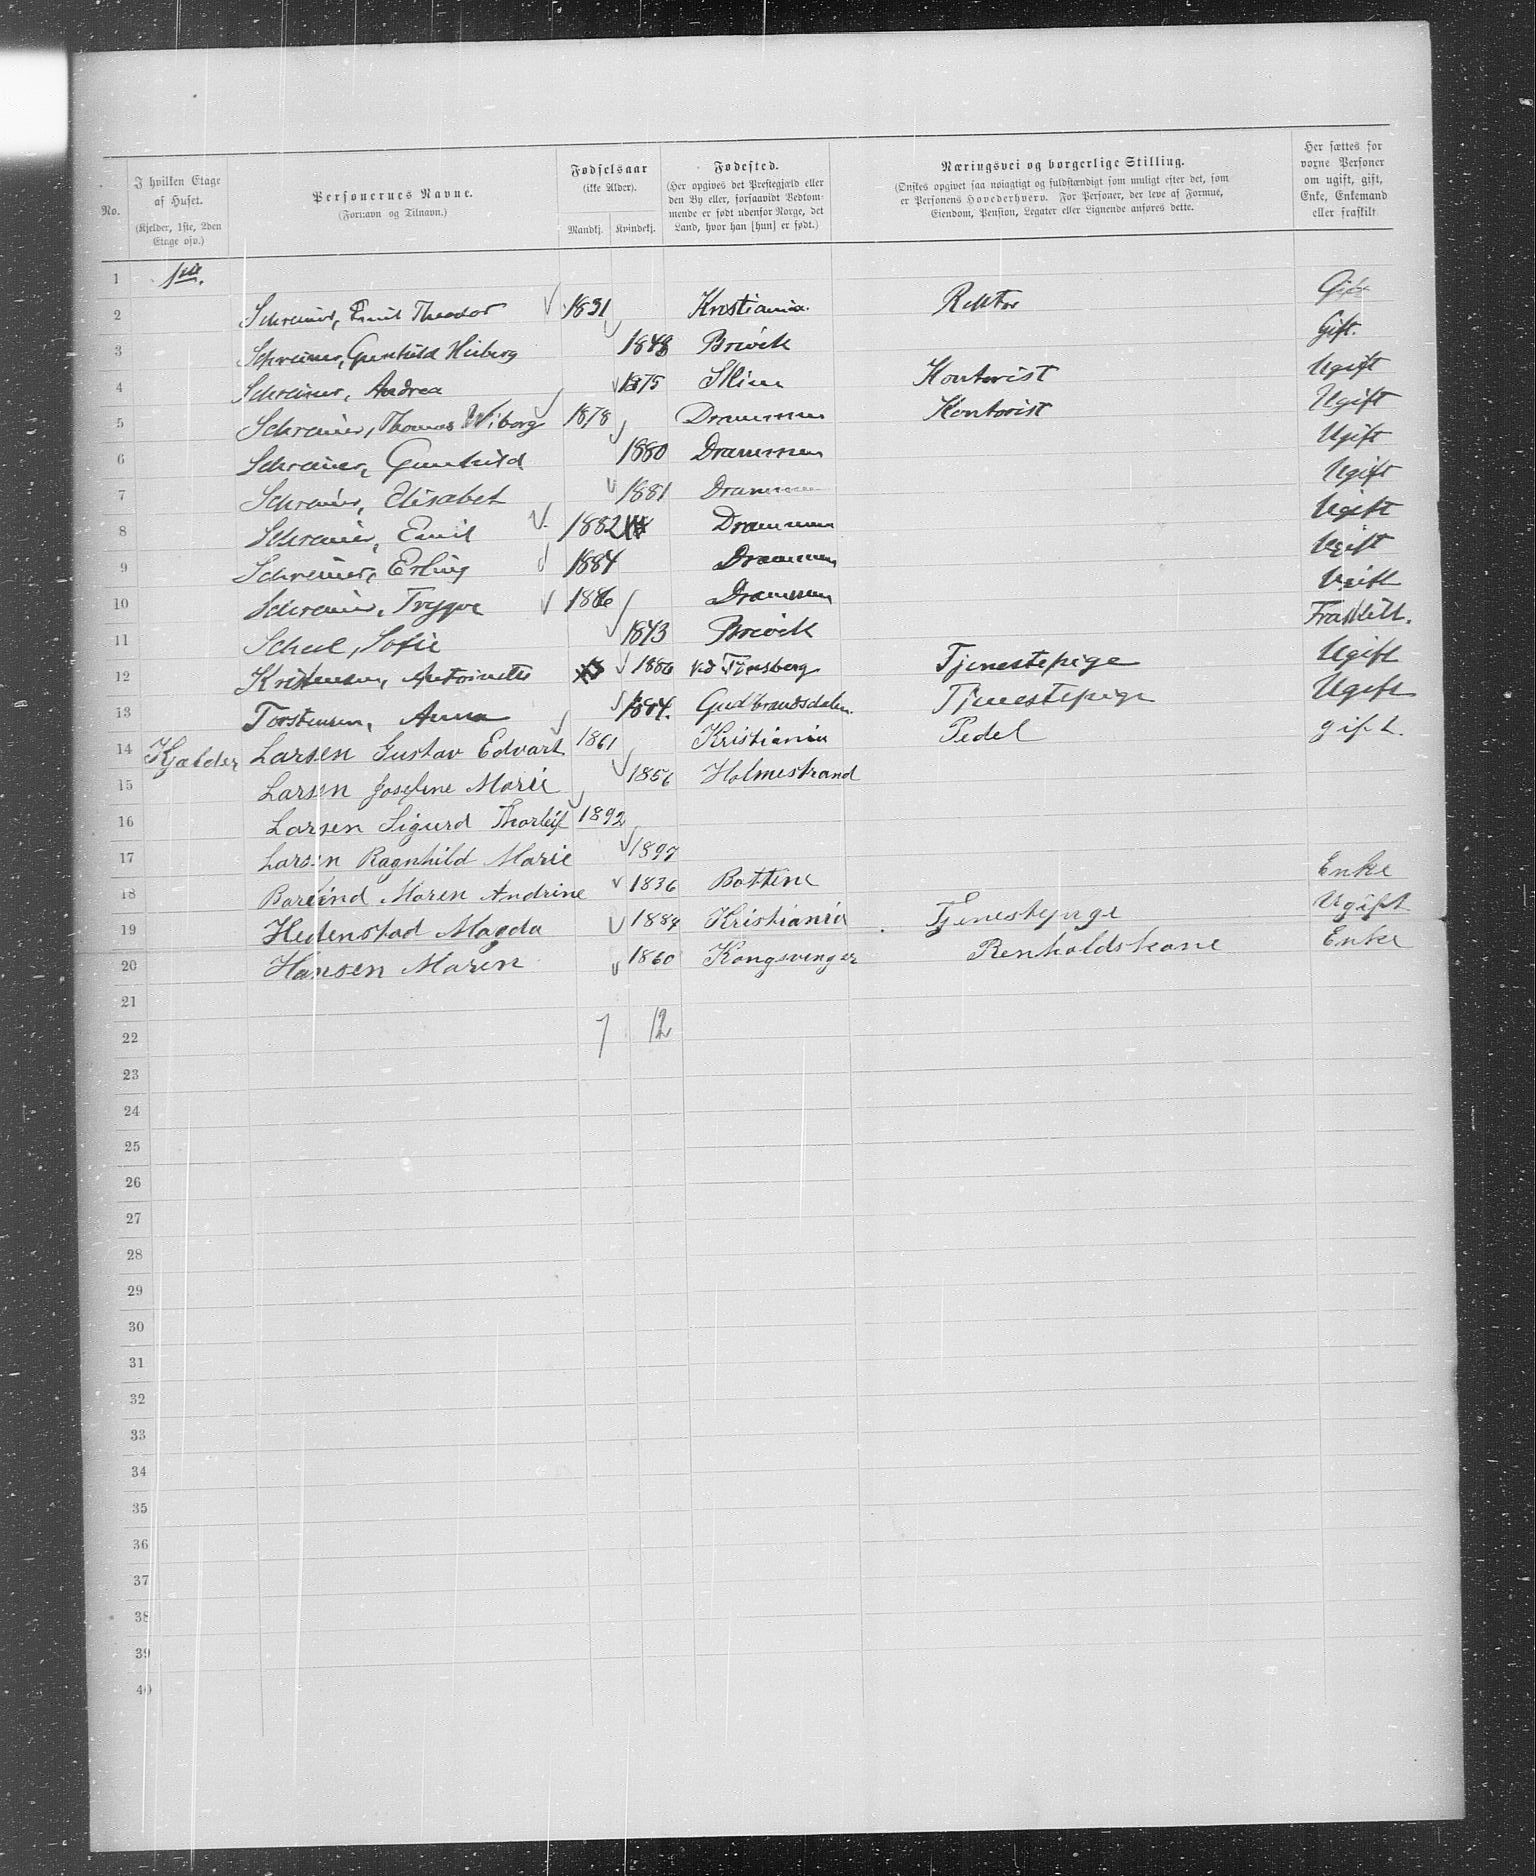 No.
I hvilken Etage af Huset. (Kjelder, 1ste, 2den Etage osv.)
Personernes Navne. (Fornavn og Tilnavn.)
Fødselsaar (ikke Alder). Mandkj. Kvindekj.
Fødested. (Her opgives det Prestegjæld eller den By eller, forsaavidt Vedkommende er født udenfor Norge, det Land, hvor han [hun] er født.)
Næringsvei og borgerlige Stilling. (Ønskes opgivet saa nøiagtigt og fuldstændigt som muligt efter det, som er Personens Hovederhverv. For Personer, der leve af Formue, Eiendom, Pension, Legater eller Lignende anføres dette.)
Her sættes for voxne Personer om ugift, gift, Enke, Enkemand eller fraskilt
1 1ste.
2 Schreiner, Emil Theodor 1831 Kristiania Rektor Gift
3 Schreiner, Gunhild Wiborg 1848 Brevik Gift.
4 Schreiner, Andrea 1875 Skien Kontorist Ugift
5 Schreiner, Thomas Wiborg 1878 Drammen Kontorist Ugift
6 Schreiner, Gunhild 1880 Drammen Ugift
7 Schreiner, Elisabet 1881 Drammen Ugift
8 Schreiner, Emil 1882 Drammen Ugift
9 Schreiner, Erling 1884 Drammen Ugift
10 Schreiner, Trygve 1886 Drammen Ugift
11 Sofie 1843 Brevik Fraskilt.
12 Kristensen, Antoinette 1886 ved Tønsberg Tjenestepige Ugift
13 Torstensen, Anna Gudbrandsdalen Tjenestepige Ugift
14 Kjælder Larsen Gustav Edvart 1861 Kristiania Pedel gift.
15 Larsen Josefine Marie 1856 Holmestrand
16 Larsen Sigurd Thorleif 1892
17 Larsen Ragnhild Marie 1897
18 Maren Andrine 1836 Enke
19 Hedenstad Magda 1884 Kristiania Tjenestepige Ugift
20 Hansen Maren 1860 Kongsvinger Renholdskone Enke
21
22 7 12
23
24
25
26
27
28
29
30
31
32
33
34
35
36
37
38
39
40